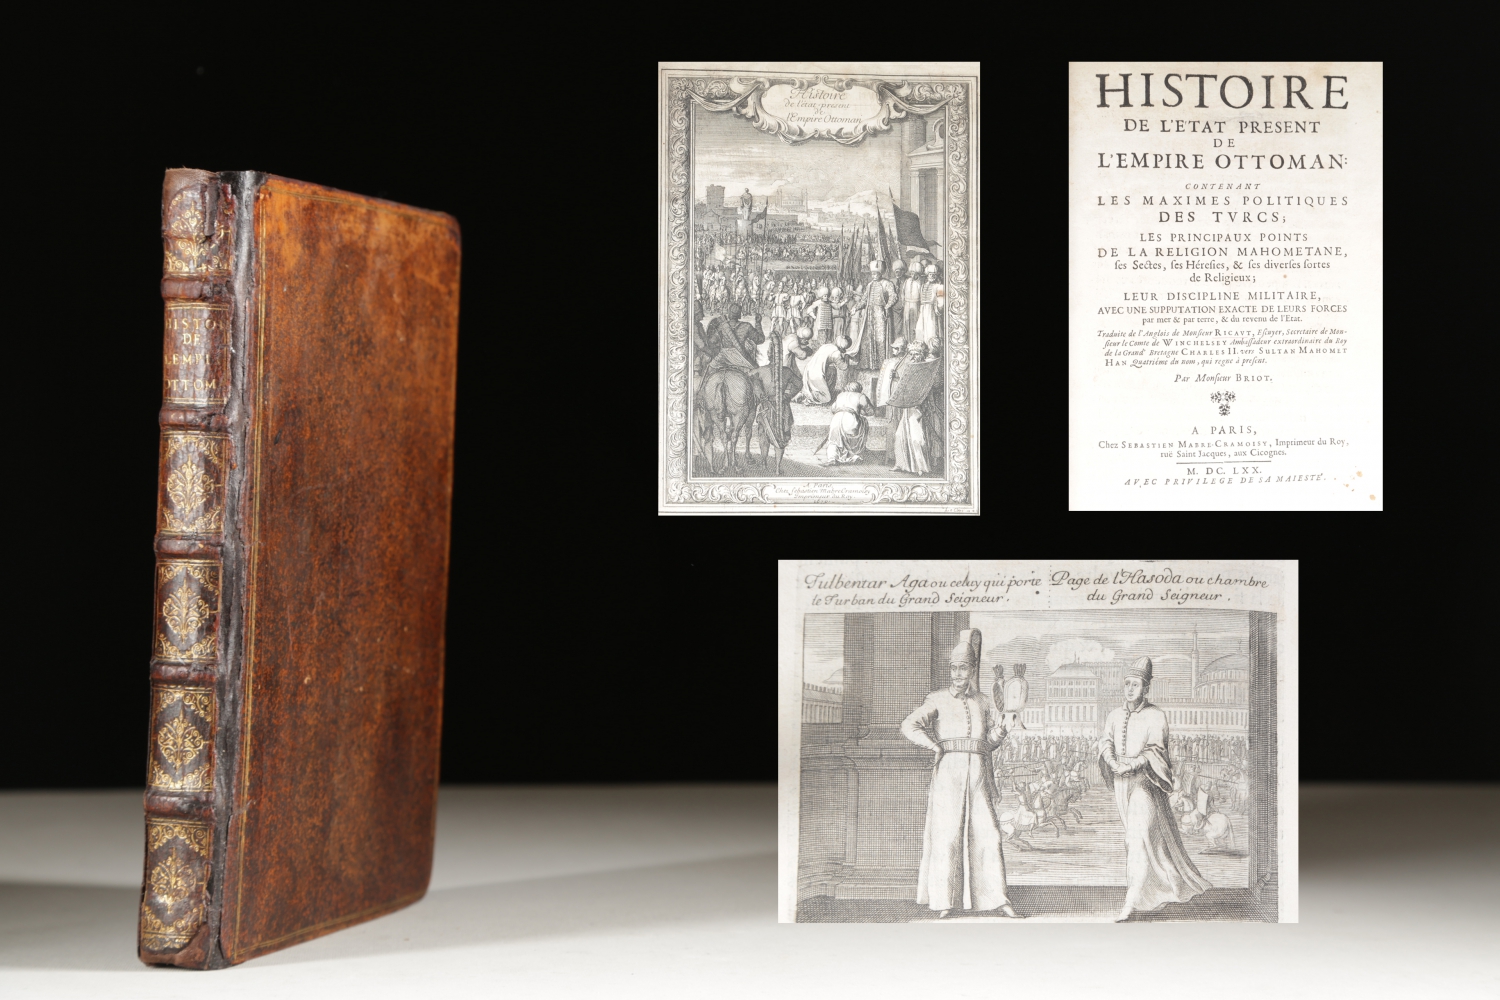 HISTO
DE
LEMPI
OTTOM
Histoire
de l'état present
de
l'Empire Ottoman
A Paris
Chez Sebastien Mabre Cramoisy
Imprimeur du Roy
HISTOIRE
DE L'ETAT PRESENT
DE
L'EMPIRE OTTOMAN:
CONTENANT
LES MAXIMES POLITIQUES
DES TVRCS;
LES PRINCIPAUX POINTS
DE LA RELIGION MAHOMETANE,
ses Sectes, ses Héresies, & ses diverses sortes
de Religieux;
LEUR DISCIPLINE MILITAIRE,
AVEC UNE SUPPUTATION EXACTE DE LEURS FORCES
par mer & par terre, & du revenu de l'Etat.
Traduite de l'Anglois de Monsieur RICAUT, Escuyer, Secretaire de Mon-
sieur le Comte de WINCHELSEY Ambassadeur extraordinaire du Roy
de la Grand' Bretagne CHARLES II. vers SULTAN MAHOMET
HAN Quatriéme du nom, qui regne à present.
Par Monsieur BRIOT.
A PARIS,
Chez SEBASTIEN MABRE-CRAMOISY, Imprimeur du Roy,
ruë Saint Jacques, aux Cicognes.
M. DC. LXX.
AVEC PRIVILEGE DE SA MAIESTE.
Tulbentar Aga ou celuy qui porte
le Turban du Grand Seigneur.
Page de l'Hasoda ou chambre
du Grand Seigneur.